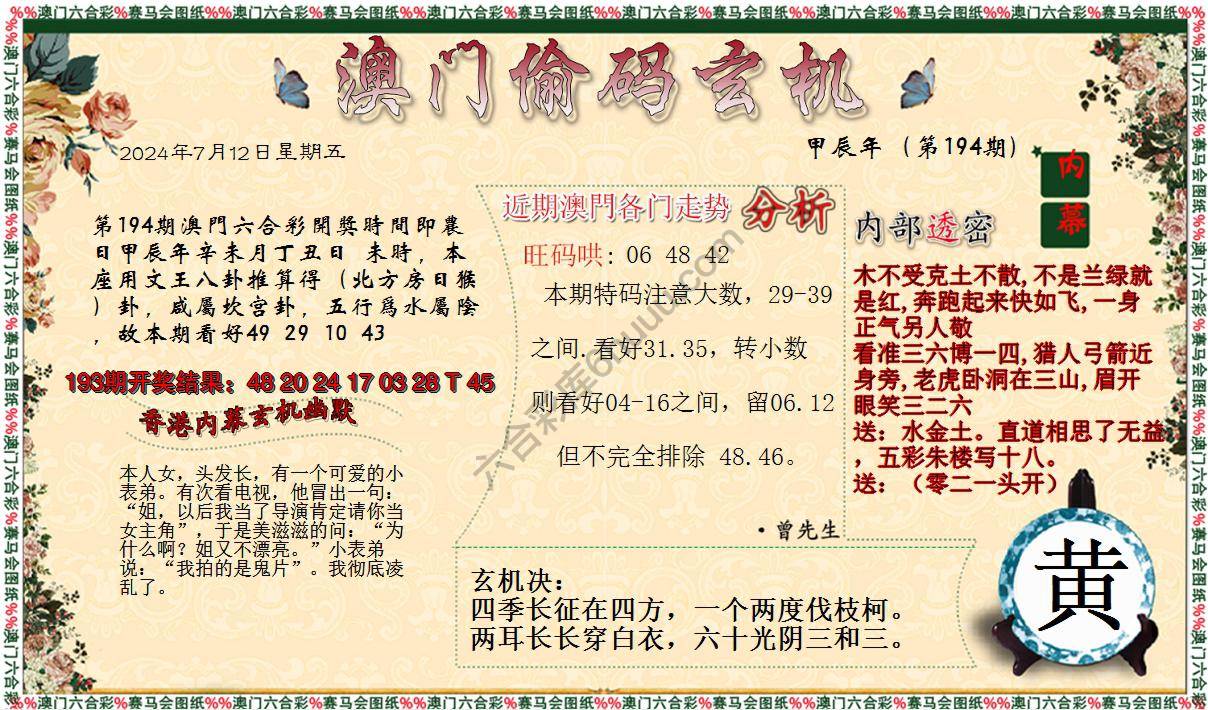 %%澳门六合彩%赛马会图纸%%澳门六合彩%赛马会图纸%%澳门六合彩%赛马会图纸%%澳门六合彩%赛马会图纸%%澳门六合彩%赛马会图纸%%澳门六合彩%赛马会图纸%%
澳门偷码玄机
2024年7月12日星期五
甲辰年（第194期）
内幕
第194期澳門六合彩開獎時間即農
日甲辰年辛未月丁丑日 未時，本
座用文王八卦推算得（北方房日猴
）卦，咸屬坎宫卦，五行爲水屬陰
，故本期看好49 29 10 43
193期开奖结果：48 20 24 17 03 28 T 45
香港内幕玄机幽默
本人女，头发长，有一个可爱的小
表弟。有次看电视，他冒出一句：
“姐，以后我当了导演肯定请你当
女主角”，于是美滋滋的问：“为
什么啊？姐又不漂亮。”小表弟
说：“我拍的是鬼片”。我彻底凌
乱了。
近期澳門各门走势 分析
旺码哄: 06 48 42
本期特码注意大数，29-39
之间.看好31.35，转小数
则看好04-16之间，留06.12
但不完全排除 48.46。
·曾先生
内部透密
木不受克土不散,不是兰绿就
是红,奔跑起来快如飞,一身
正气另人敬
看准三六博一四,猎人弓箭近
身旁,老虎卧洞在三山,眉开
眼笑三二六
送：水金土。直道相思了无益
，五彩朱楼写十八。
送：（零二一头开）
玄机决：
四季长征在四方，一个两度伐枝柯。
两耳长长穿白衣，六十光阴三和三。
黄
%%澳门六合彩%赛马会图纸%%澳门六合彩%赛马会图纸%%澳门六合彩%赛马会图纸%%澳门六合彩%赛马会图纸%%澳门六合彩%赛马会图纸%%澳门六合彩%赛马会图纸%%